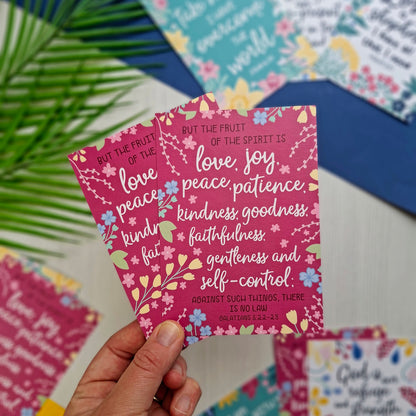 BUT THE FRUIT
OF THE SPIRIT IS
love, joy,
peace, patience,
kindness, goodness,
faithfulness,
gentleness and
self-control.
AGAINST SUCH THINGS, THERE
IS NO LAW.
GALATIANS 5:22-23
BUT THE FRUIT
OF THE
love
peace
kindn
faith
overcome
the
world
God is